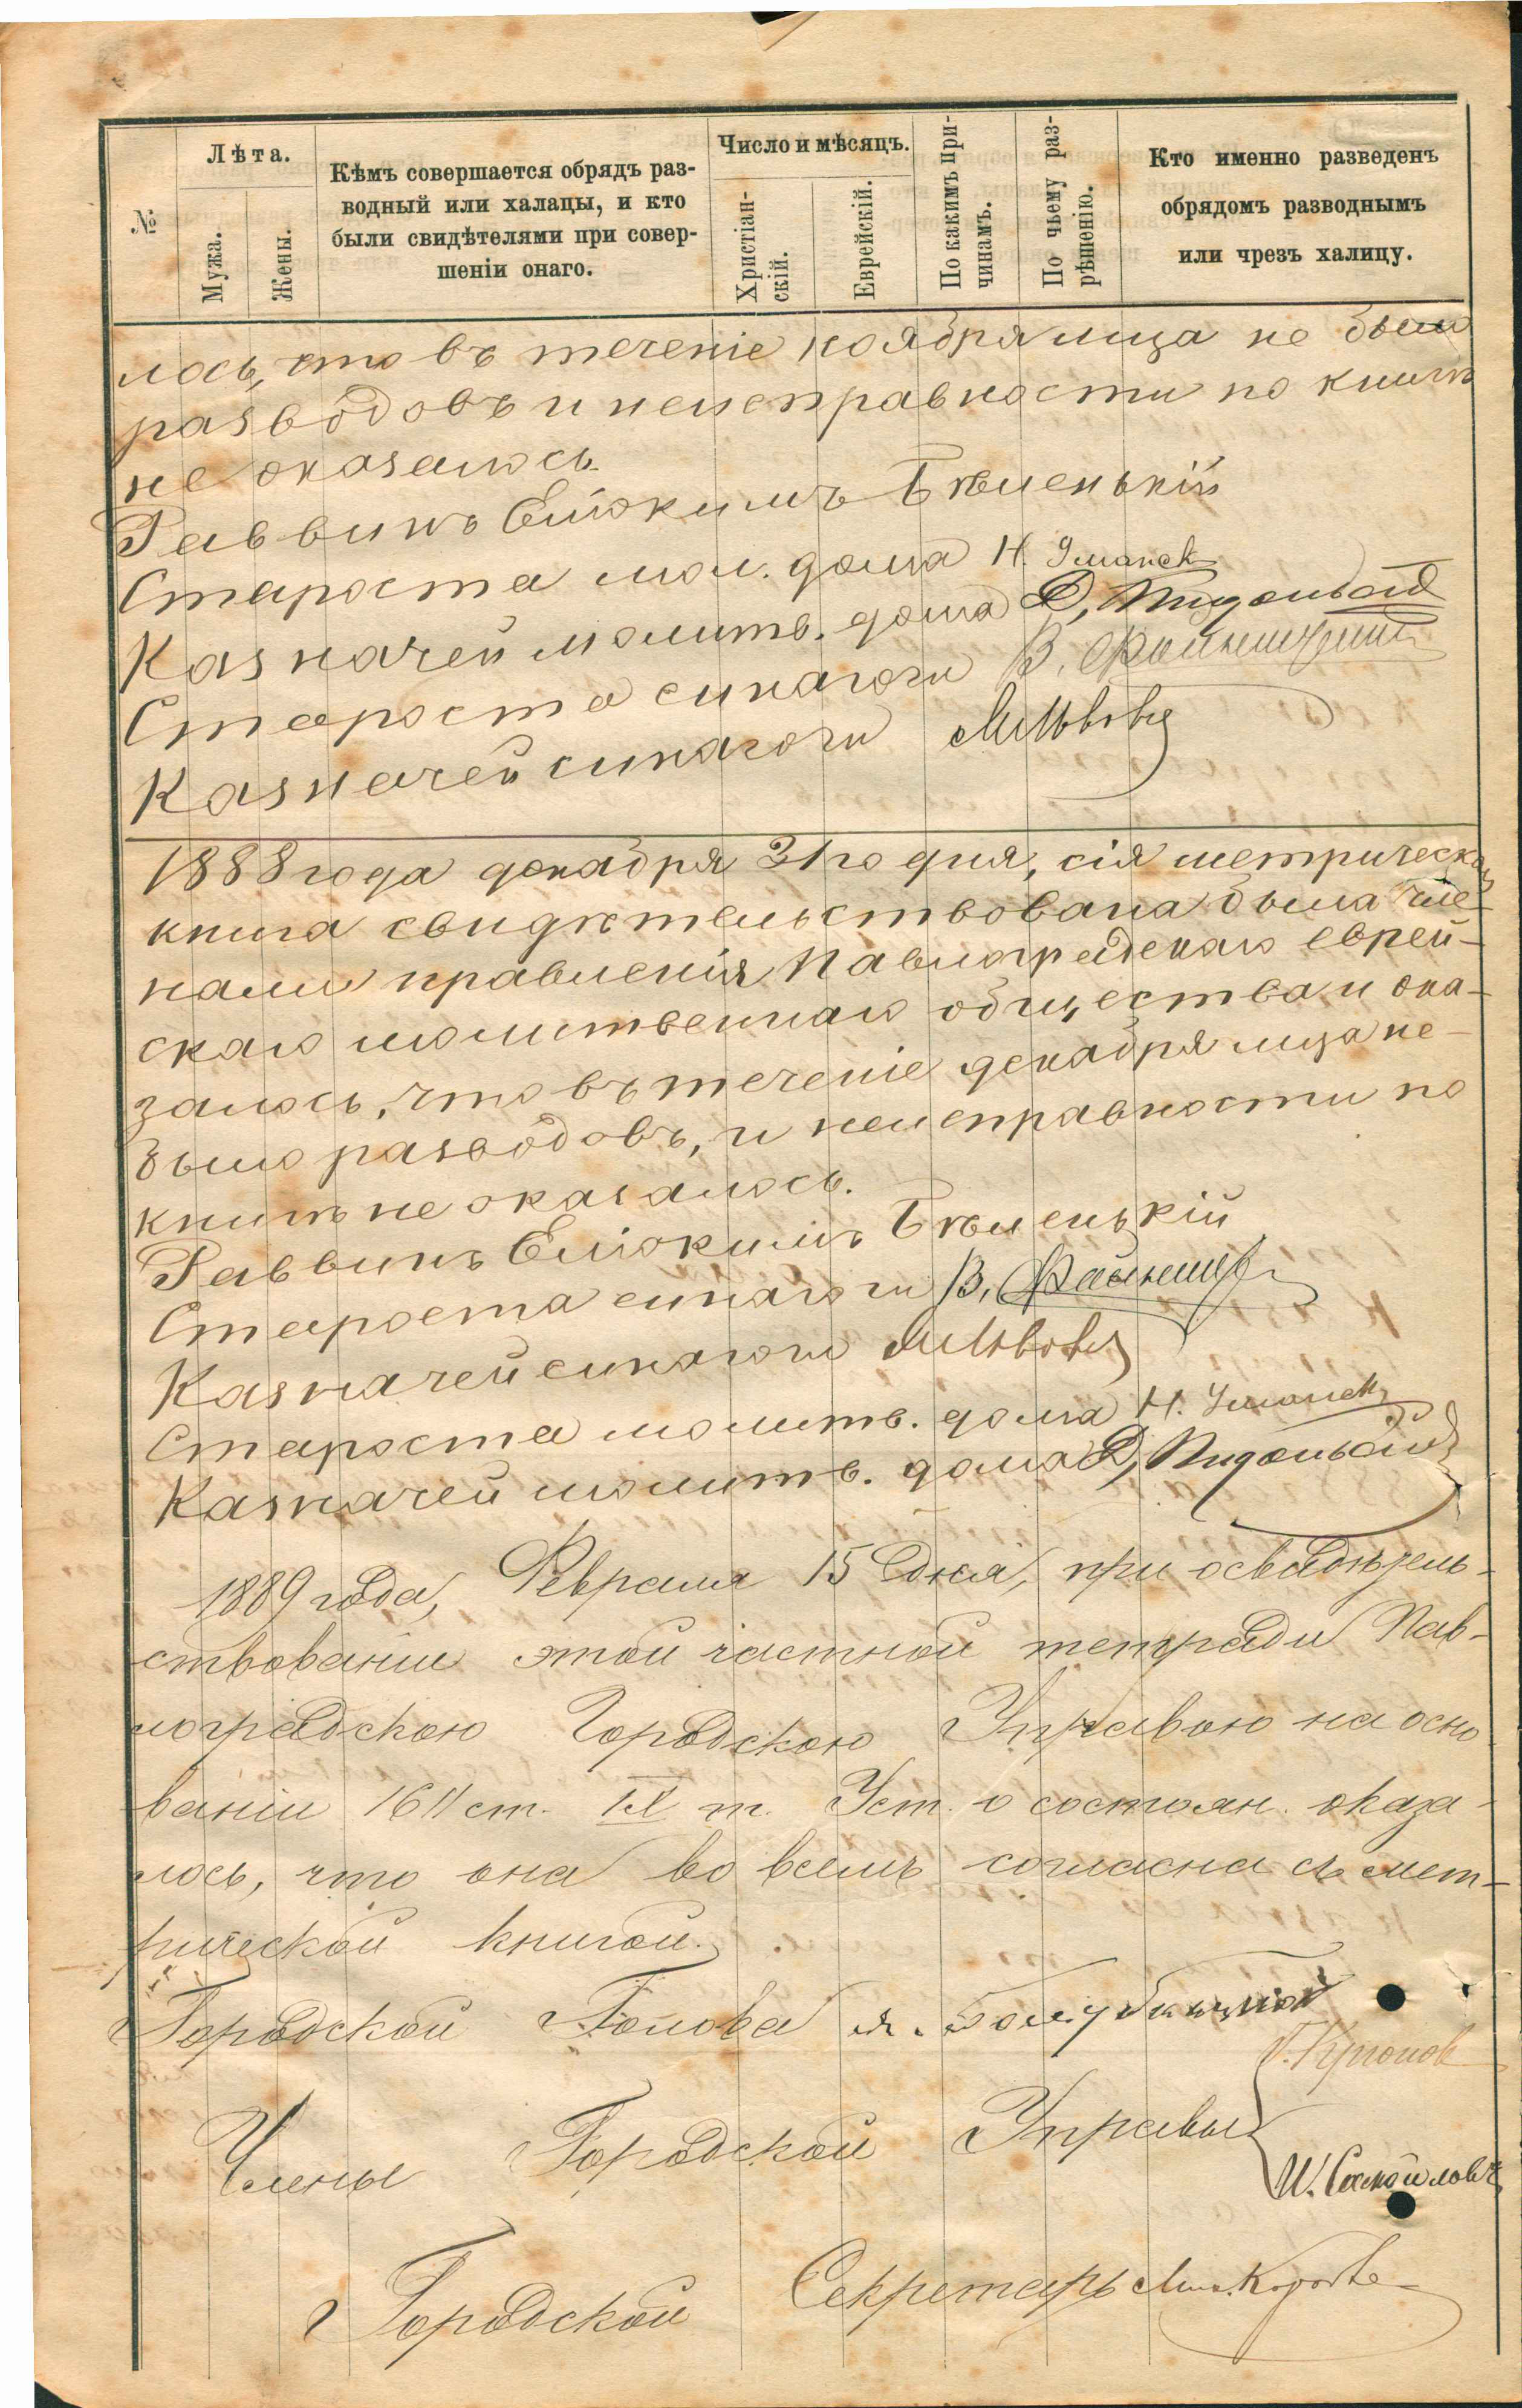 №
Лѣта.
Мужа.
Жены.
Кѣмъ совершается обрядъ раз-
водный или халацы, и кто
были свидѣтелями при совер-
шеніи онаго.
Число и мѣсяцъ.
Христіан-
скій.
Еврейскій.
По какимъ при-
чинамъ.
По чьему раз-
рѣшенію.
Кто именно разведенъ
обрядомъ разводнымъ
или чрезъ халицу.
лось, что въ теченіе ноября мца не было
разводовъ и неисправности по книгѣ
не оказалось.
Раввинъ Еліокимъ Бѣленькій
Староста мол. дома Н. Уманск
Казначей молитв. дома
Староста синагоги В.
Казначей синагоги
1888 года декабря 31го дня, сія метрическая
книга свидѣтельствована была чле-
нами правленія Павлоградскаго еврей-
скаго молитвеннаго общества и ока-
залось, что въ теченіе декабря мца не
было разводовъ, и неисправности по
книгѣ не оказалось.
Раввинъ Еліокимъ Бѣленькій
Староста синагоги В.
Казначей синагоги
Староста молитв. дома Н. Уманск
Казначей молитв. дома
1889 года, Февраля 15 дня, при освидѣтель-
ствованіи этой частной тетради Пав-
лоградскою Городскою Управою на осно
ваніи 1611 ст. IX т. Уст. о состоян. оказа-
лось, что она во всемъ согласна съ мет-
рической книгой.
Городской Голова
Члены Городской Управы
Городской Секретарь